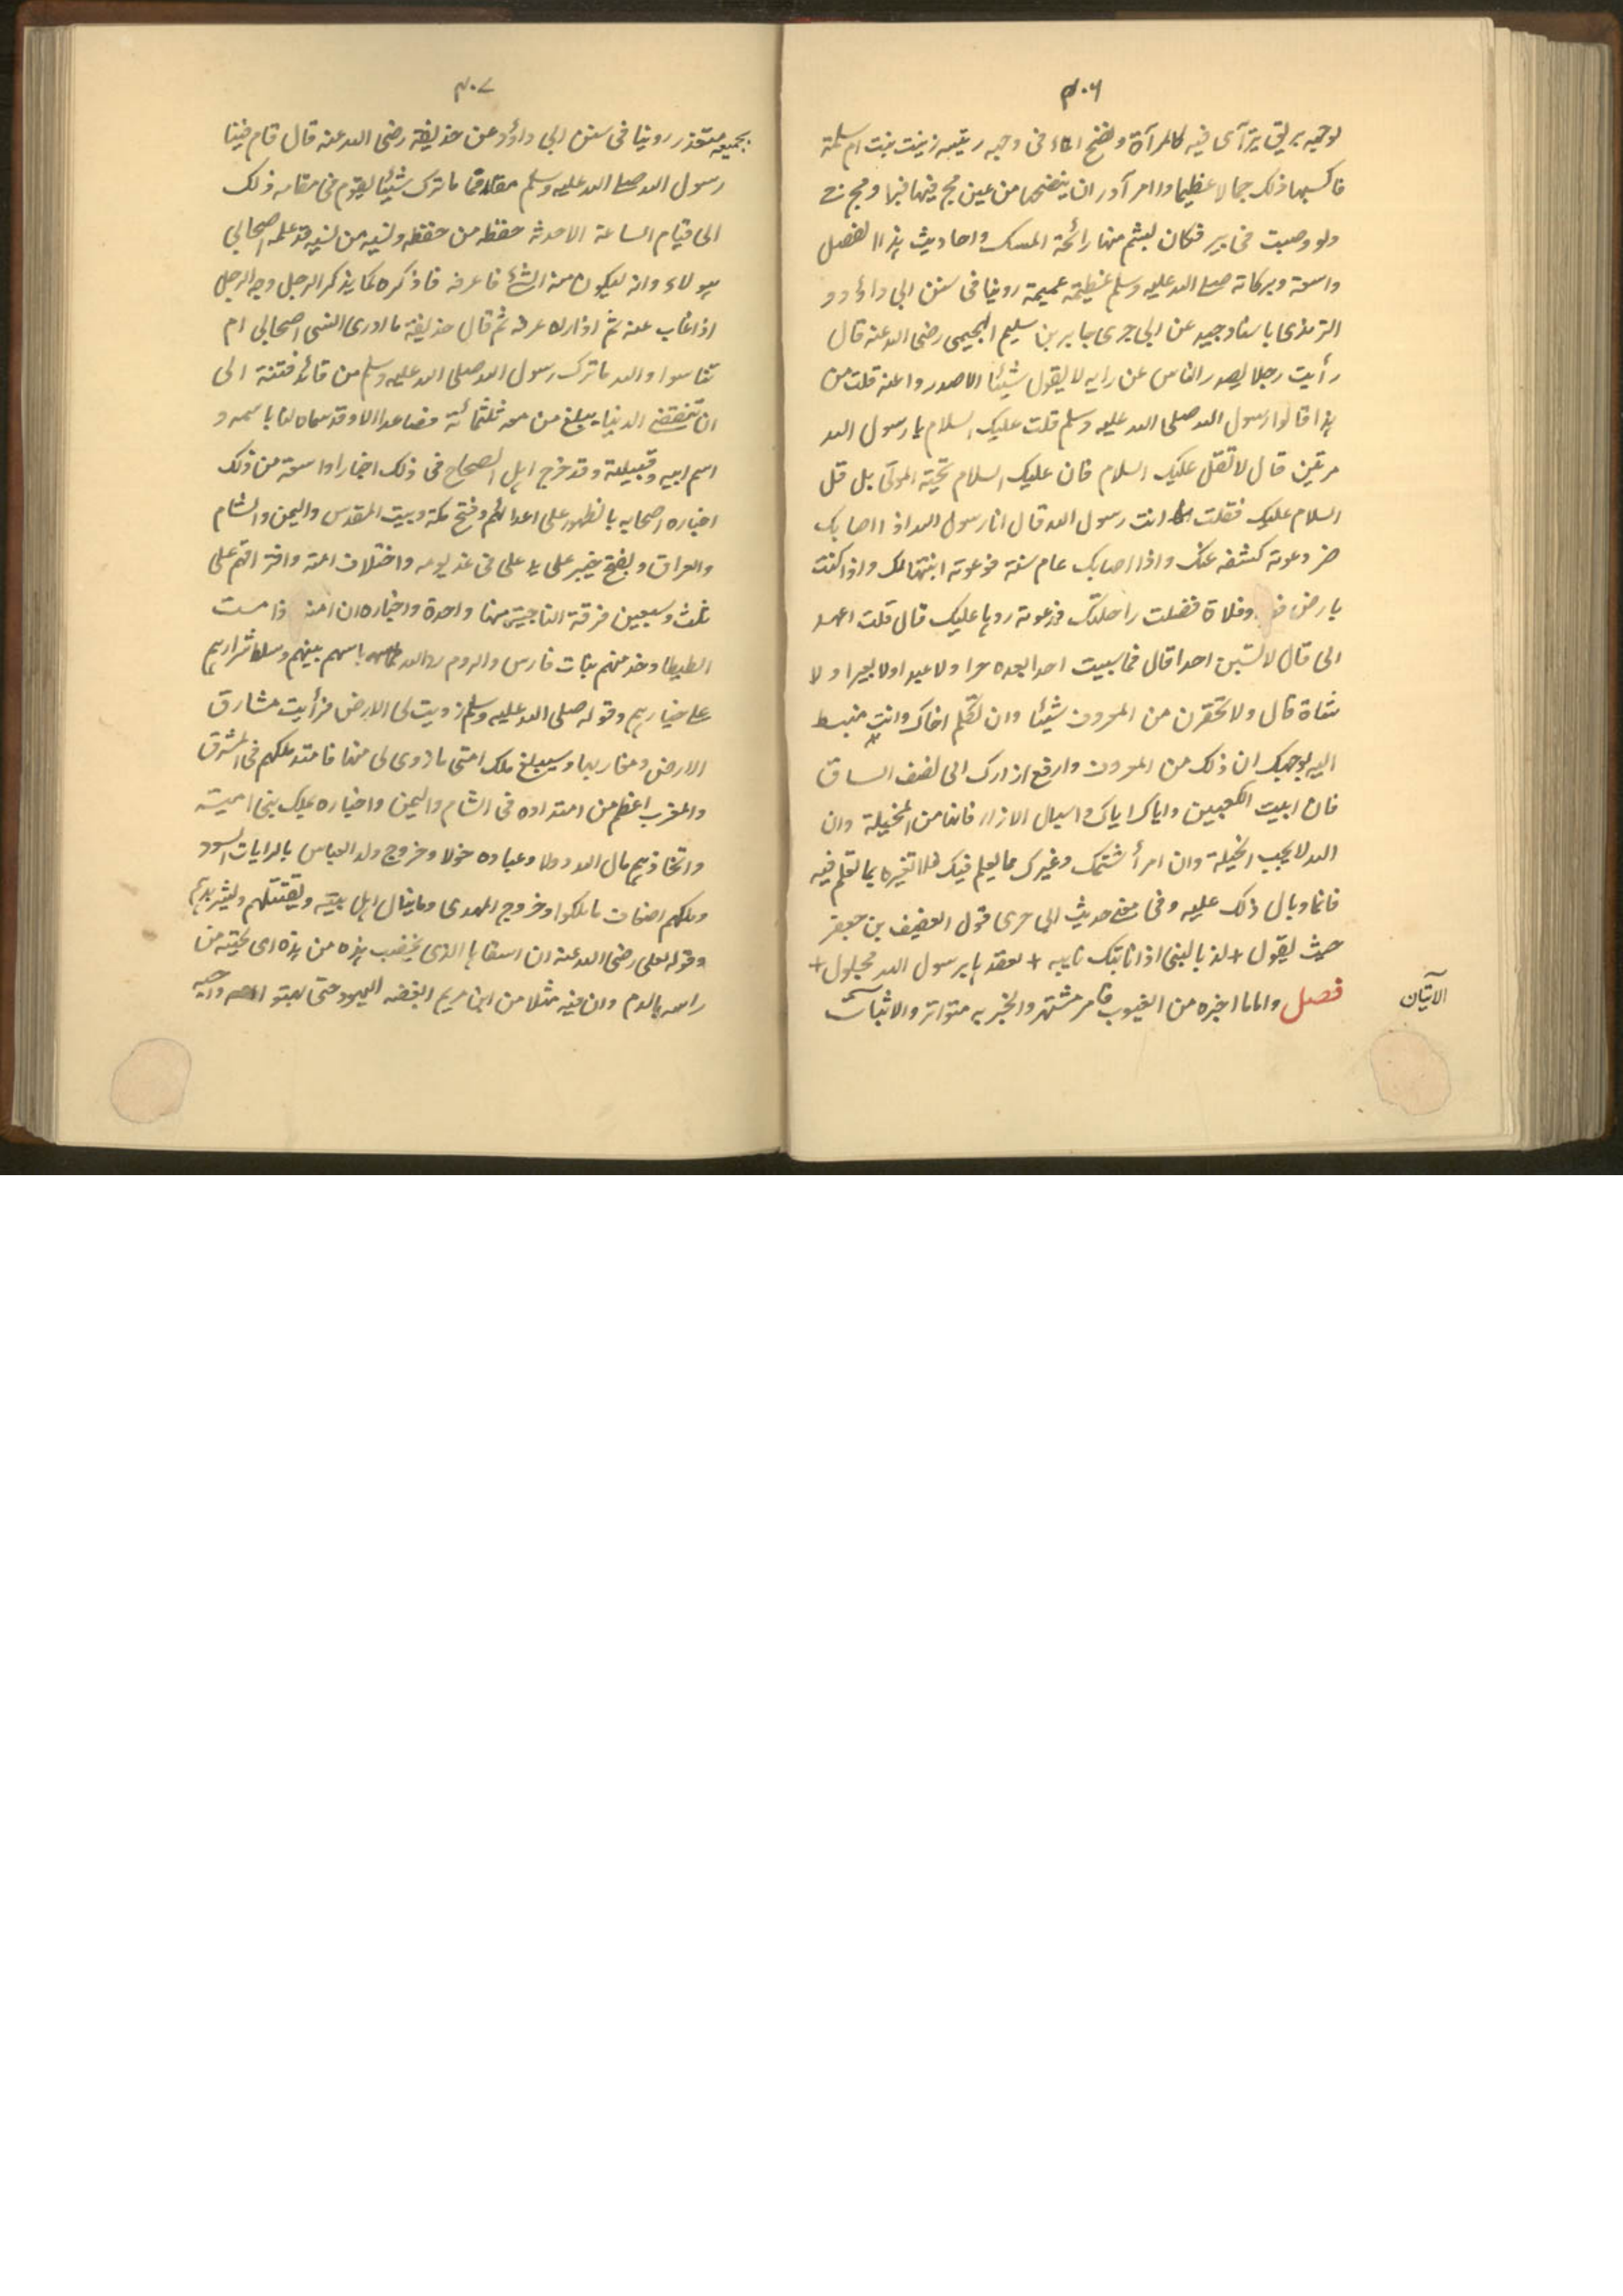 ٤٠٦
لوجهه بريق يترآى فيه كالمرآة ونضخ الماء فى وجه ربيبه زينب بنت ام سلمة
فاكسبها ذلك جمالا عظيما وامر آدر ان ينضحها من عين مج فيها فيها ومج فى
دلو وصبت فى بير فكان يشم منها رائحة المسك واحاديث هذا الفصل
واسعة وبركاته صلى الله عليه وسلم عظيمة عميمة روينا فى سنن ابى داؤد و
الترمذى باسناد جيد عن ابى جرى جابر بن سليم الهجيمى رضى الله عنه قال
رأيت رجلا يصدر الناس عن رايه لا يقول شيئا الا صدروا عنه قلت من
هذا قالوا رسول الله صلى الله عليه وسلم قلت عليك السلام يا رسول الله
مرتين قال لا تقل عليك السلام فان عليك السلام تحية الموتى بل قل
السلام عليك فقلت انت رسول الله قال انا رسول الله اذا اصابك
ضر دعوته كشفه عنك واذا اصابك عام سنة فدعوته انبتها لك واذا كنت
بارض وفلاة فضلت راحلتك فدعوته ردها عليك قال قلت اعهد
الى قال لا تسبن احدا قال فما سببت احدا بعده حرا ولا عبدا ولا بعيرا ولا
شاة قال ولا تحقرن من المعروف شيئا وان تكلم اخاك وانت منبسط
اليه بوجهك ان ذلك من المعروف وارفع ازارك الى نصف الساق
فان ابيت الكعبين واياك اياك واسبال الازار فانها من المخيلة وان
الله لا يحب المخيلة وان امرأ شتمك وعيرك مما يعلم فيك فلا تعيره بما تعلم فيه
فانما وبال ذلك عليه وفى معنى حديث ابى جرى قول العفيف بن جعفر
حيث يقول + لذ بالنبى اذا نابتك نايبه + لعقد بابرسول الله محلول +
فصل واما ما اخبره من الغيوب فامر مشتهر والخبر به متواتر والاثبات
الآتيان
٤٠٧
بجميعه متعذر روينا فى سنن ابى داؤد عن حذيفة رضى الله عنه قال قام فينا
رسول الله صلى الله عليه وسلم مقاما ما ترك شيئا يقوم فى مقامه ذلك
الى قيام الساعة الا حدثه حفظه من حفظه ونسيه من نسيه قد علمه اصحابى
هولاء وانه ليكون منه الشئ فاعرفه فاذكره كما يذكر الرجل وجه الرجل
اذا غاب عنه ثم اذا راه عرفه ثم قال حذيفة ما ادرى انسى اصحابى ام
تناسوا والله ما ترك رسول الله صلى الله عليه وسلم من قائد فتنة الى
ان تنقضى الدنيا يبلغ من معه ثلثمائة فصاعدا الا وقد سماه لنا باسمه و
اسم ابيه وقبيلته وقد خرج اهل الصحاح فى ذلك اخبارا واسعة من ذلك
اخباره اصحابه بالظهور على اعدائهم وفتح مكة وبيت المقدس واليمن والشام
والعراق وبفتح خيبر على يد على فى غد يومه واختلاف امته وافتراقهم على
ثلث وسبعين فرقة الناجية منها واحدة واخباره ان امته اذا مشت
المطيطا وخدمتهم بنات فارس والروم رد الله باسهم بينهم وسلط شرارهم
على خيارهم وقوله صلى الله عليه وسلم زويت لى الارض فرأيت مشارق
الارض ومغاربها وسيبلغ ملك امتى ما زوى لى منها فامتد ملكهم فى المشرق
والمغرب اعظم من امتداده فى الشام واليمن واخباره بملك بنى امية
واتخاذهم مال الله دولا وعباده خولا وخروج ولد العباس بالرايات السود
وملكهم اضعاف ما ملكوا وخروج المهدى وما ينال اهل بيته وتقتيلهم وتشريدهم
وقوله لعلى رضى الله عنه ان اشقاها الذى يخضب هذه من هذه اى لحيته من
راسه بالدم وان فيه مثلا من ابن مريم ابغضه اليهود حتى بهتوا امه واحبه